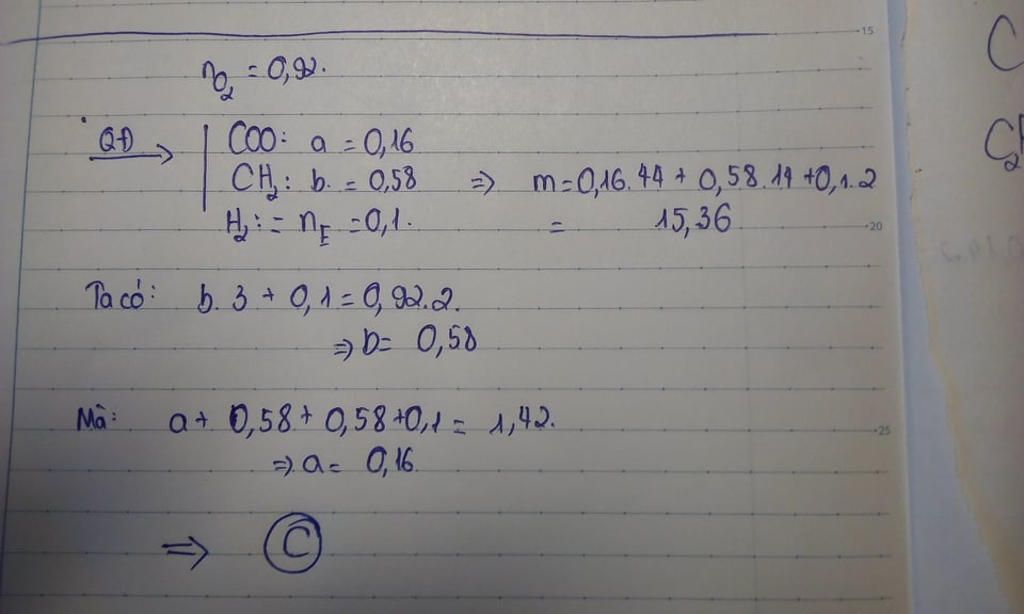 15
nO₂ = 0,92.
QĐ → COO: a = 0,16
CH₂: b. = 0,58 ⇒ m = 0,16.44 + 0,58.14 + 0,1.2
H₂: = nE = 0,1. = 15,36
20
Ta có: b. 3 + 0,1 = 0,92.2.
⇒ b = 0,58
Mà: a + 0,58 + 0,58 + 0,1 = 1,42.
25
⇒ a = 0,16
⇒ C
C
C₂